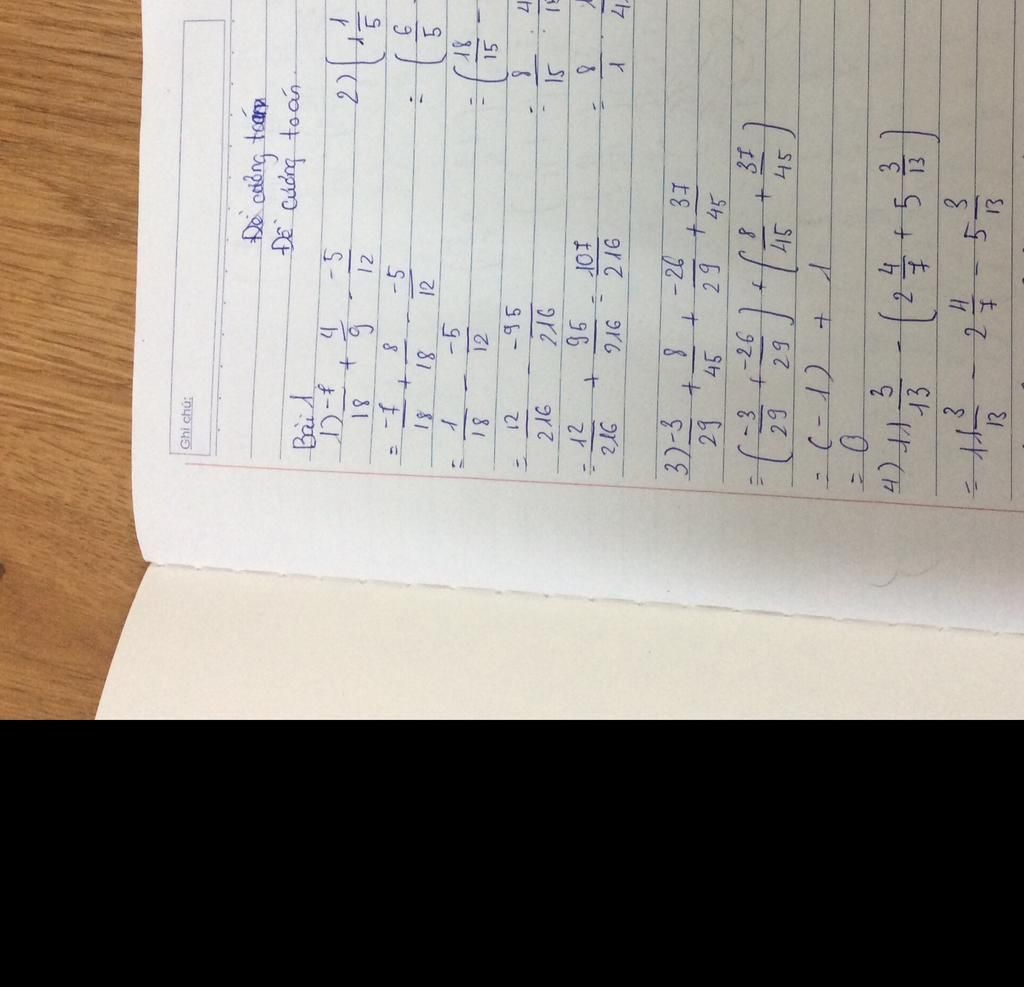 Ghi chú:
Đề cương toán
Đề cương toán
Bài 1
1) -7/18 + 4/9 - -5/12
= -7/18 + 8/18 - -5/12
= 1/18 - -5/12
= 12/216 - -95/216
= 12/216 + 95/216 = 107/216
2) (1 1/5
= (6/5
= (18/15 -
= 8/15 .
= 8/1 .
3) -3/29 + 8/45 + -26/29 + 37/45
= (-3/29 + -26/29) + (8/45 + 37/45)
= (-1) + 1
= 0
4) 11 3/13 - (2 4/7 + 5 3/13)
= 11 3/13 - 2 4/7 - 5 3/13